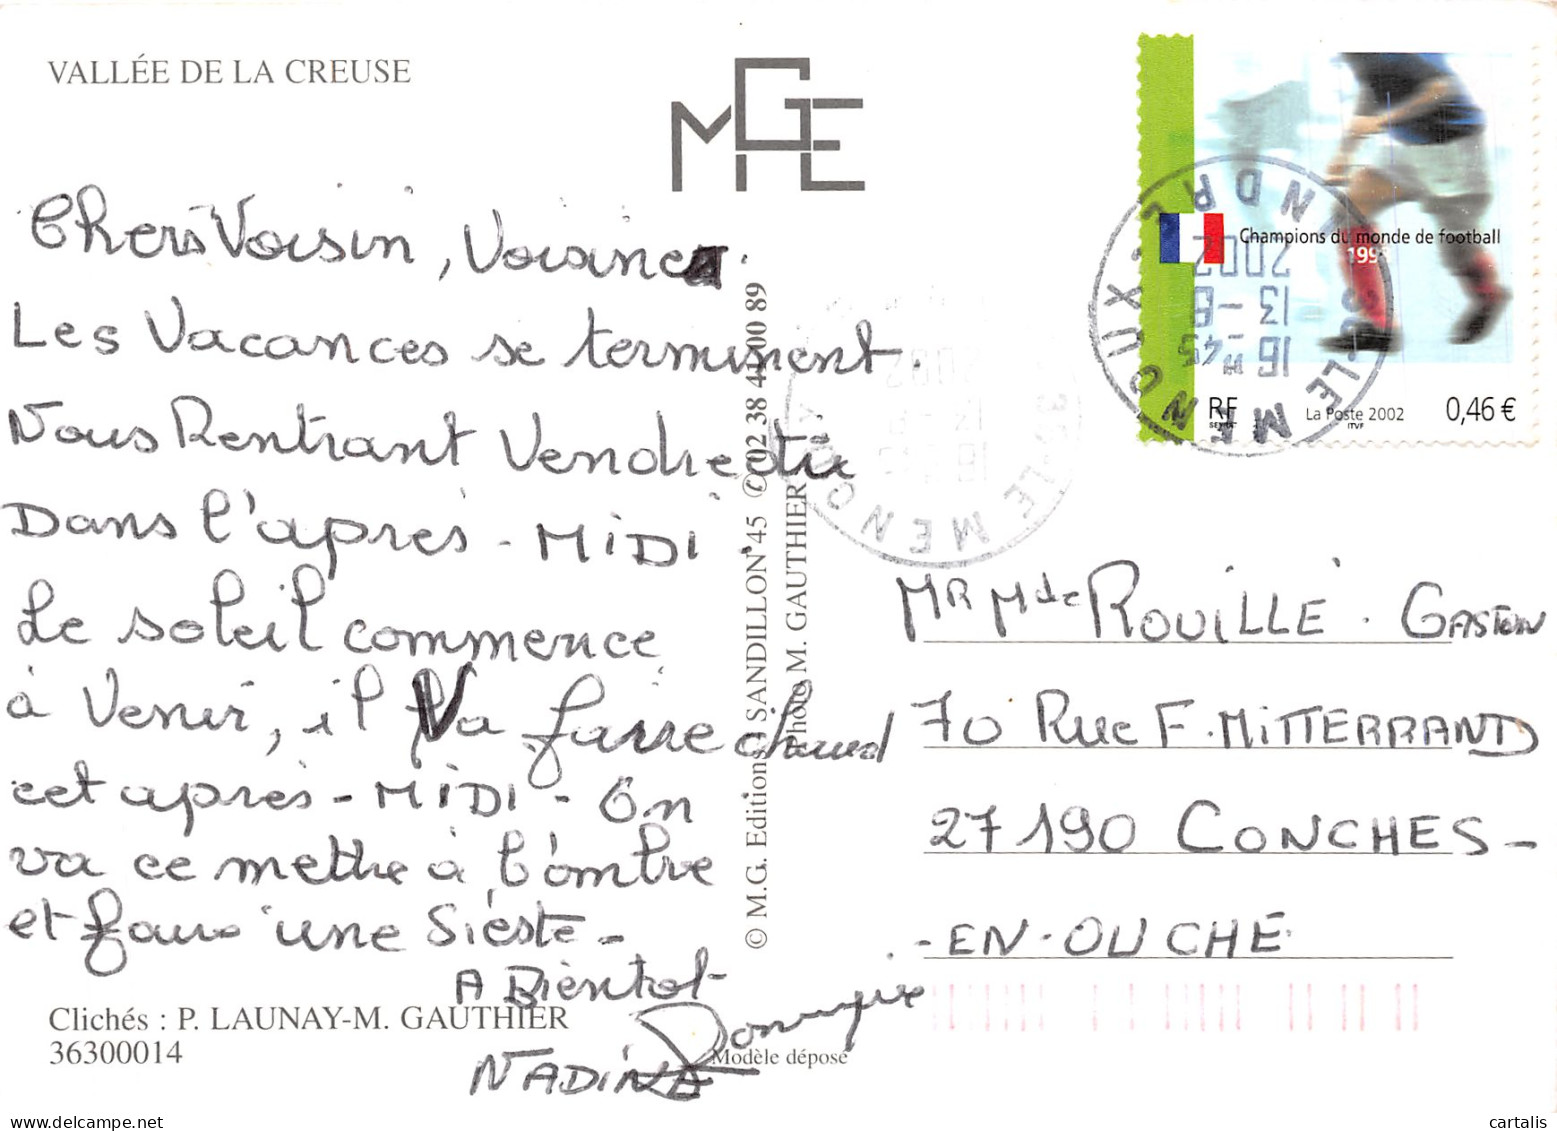 VALLÉE DE LA CREUSE
MGE
Chers Voisin, Voisine.
Les Vacances se terminent.
Nous Rentrant Vendredi
Dans l'après - MiDi.
Le soleil commence
à Venir, il Va faire chaud
cet après - MiDi - On
va ce mettre à l'ombre
et faire une Siéste -
A Bientot
Dominique
NADiNE
Clichés : P. LAUNAY-M. GAUTHIER
36300014
Modèle déposé
© M.G. Editions SANDILLON 45 ✆ 02 38 41 00 89
Photo M. GAUTHIER
Champions du monde de football
199
RF
La Poste 2002
ITVF
0,46 €
36-LE MENOUX
INDRE
16H45
13-8
2002
MR Mde ROUiLLÉ. GASTON
70 Rue F. MiTTERRAND
27190 CONCHES-
-EN-OUCHE
cartalis